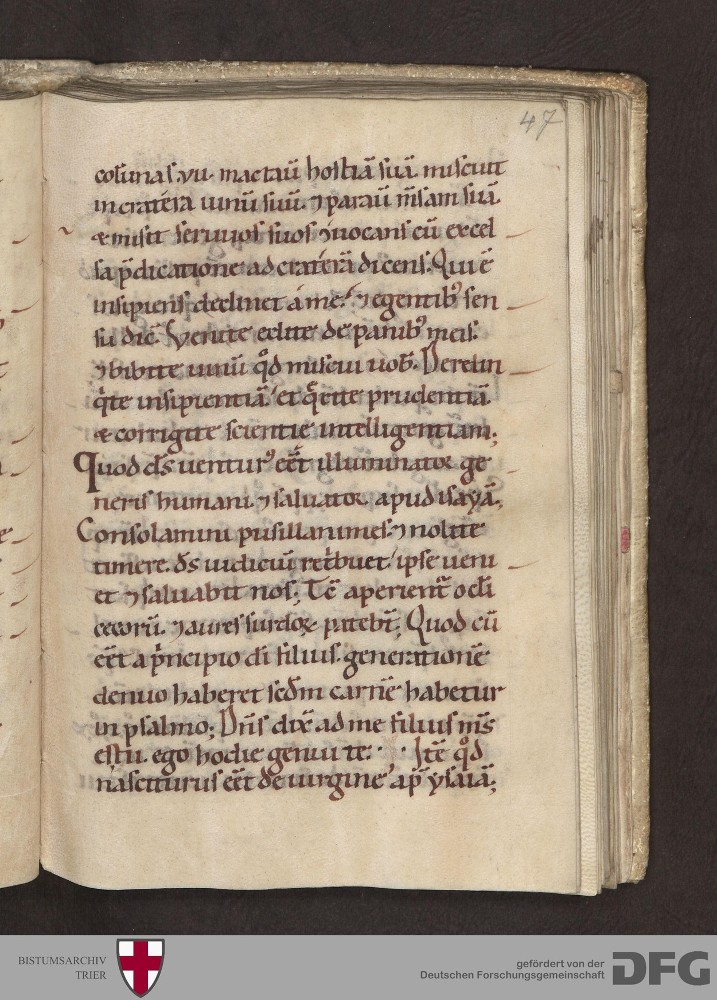 47
colūnas. vii. mactaū hostiā suā. miscuit
in cratera uinū suū. ⁊ paraū m̄sam suā.
& misit seruuos suos ⁊ uocans cū excel
sa p̄dicatione ad craterā dicens. Qui ē
insipiens declinet ad me. ⁊ egentibꝰ sen
su dix̄. Venite edite de panibꝰ meis.
⁊ bibite uinū qđ miscui uob̄. Derelin
qͥte insipientiā. et q̄rite prudentiā.
& corrigite scientie intelligentiam;
Quod d̄s uenturꝰ eēt illuminator ge
neris humani. ⁊ saluator. apud isayā;
Consolamini pusillanimes. ⁊ nolite
timere. d̄s iudiciū ret̄buet. ipse ueni
et ⁊ saluabit nos; Tc̄ aperient᷑ oc̄li
cecorū. ⁊ aures surdoꝝ patebt̄; Quod cū
eēt a p̄ncipio dī filius. generationē
denuo haberet scd̄m carnē habetur
in psalmo; Dn̄s dix̄ ad me filius m̄s
es tu. ego hodie genui te. Itē qđ
nasciturus eēt de uirgine. ap̄ ysaiā;
BISTUMSARCHIV
TRIER
gefördert von der
Deutschen Forschungsgemeinschaft
DFG